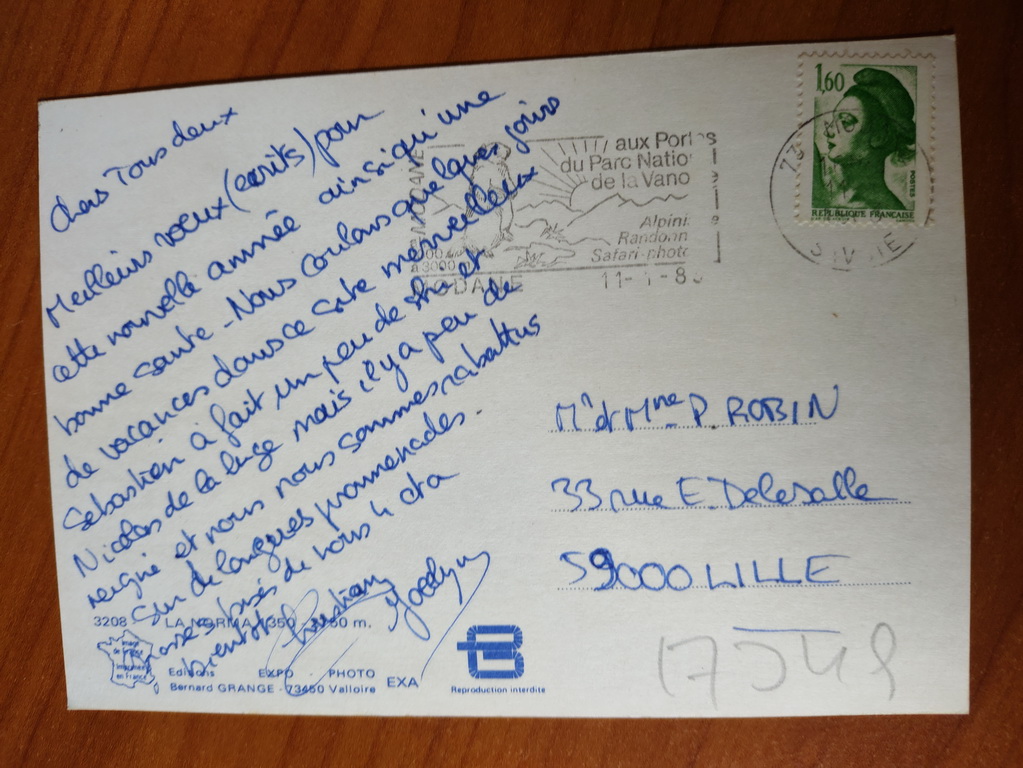 Chers Tous deux
Meilleurs voeux (écrits) pour
cette nouvelle année ainsi qu'une
bonne santé - Nous coulons quelques jours
de vacances dans ce site merveilleux
Sébastien à fait un peu de ski et
Nicolas de la luge mais il y a peu de
neige et nous nous sommes rabattus
sur de longues promenades.
Grosses bises de nous 4 et à
bientôt
Christian Jocelyne
MODANE
à 3000
aux Portes
du Parc Natio
de la Vano
Alpini
Randonn
Safari-photo
MODANE
73
SAVOIE
1,60
POSTES
REPUBLIQUE FRANCAISE
Mr et Mme P. ROBIN
33 rue E. Delesalle
59000 LILLE
3208 LA NORMA 1350 - 2750 m.
Image de France
imprimée en France
Editions EXPO PHOTO
Bernard GRANGE - 73450 Valloire
EXA
Reproduction interdite